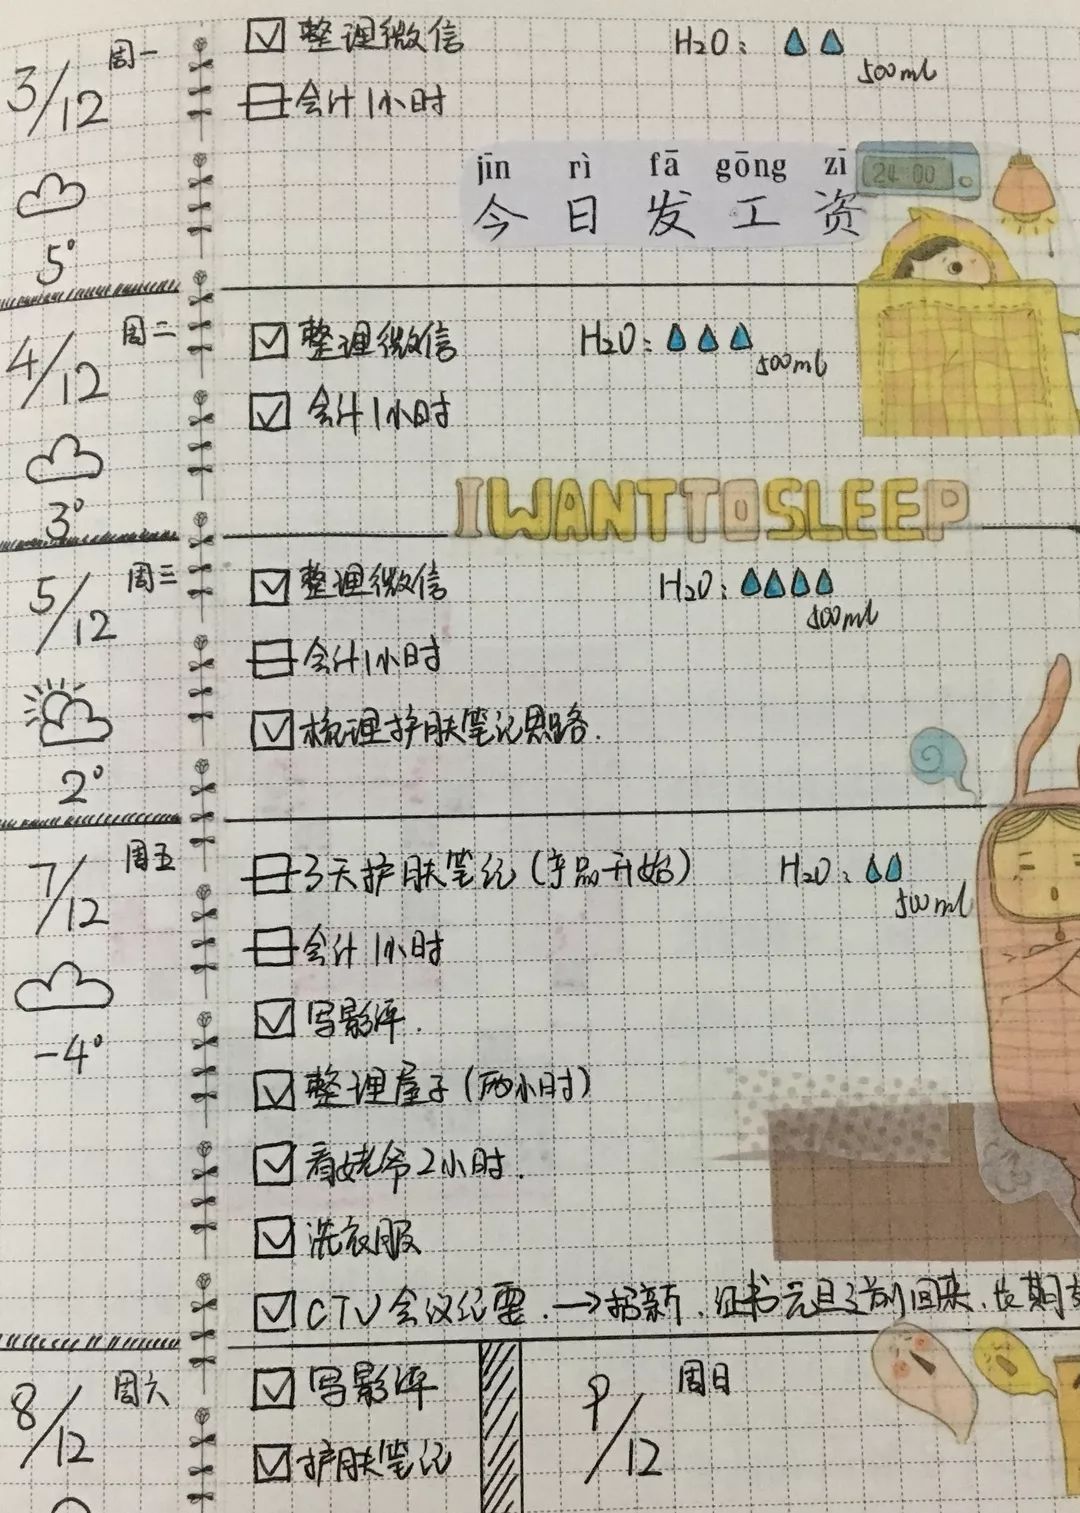 3/12 周一
整理微信 H2O: 500ml
会计1小时
jīn rì fā gōng zī
今日发工资
24:00
5°
4/12 周二
整理微信 H2O: 500ml
会计1小时
3°
I WANT TO SLEEP
5/12 周三
整理微信 H2O: 500ml
会计1小时
梳理护肤笔记思路.
2°
7/12 周五
3天护肤笔记(产品开始) H2O: 500ml
会计1小时
写影评.
-4°
整理屋子(两小时)
看姥爷2小时.
洗衣服
CTV会议纪要.→招新.证书元旦之前回来.长期
8/12 周六
写影评
护肤笔记
9/12 周日